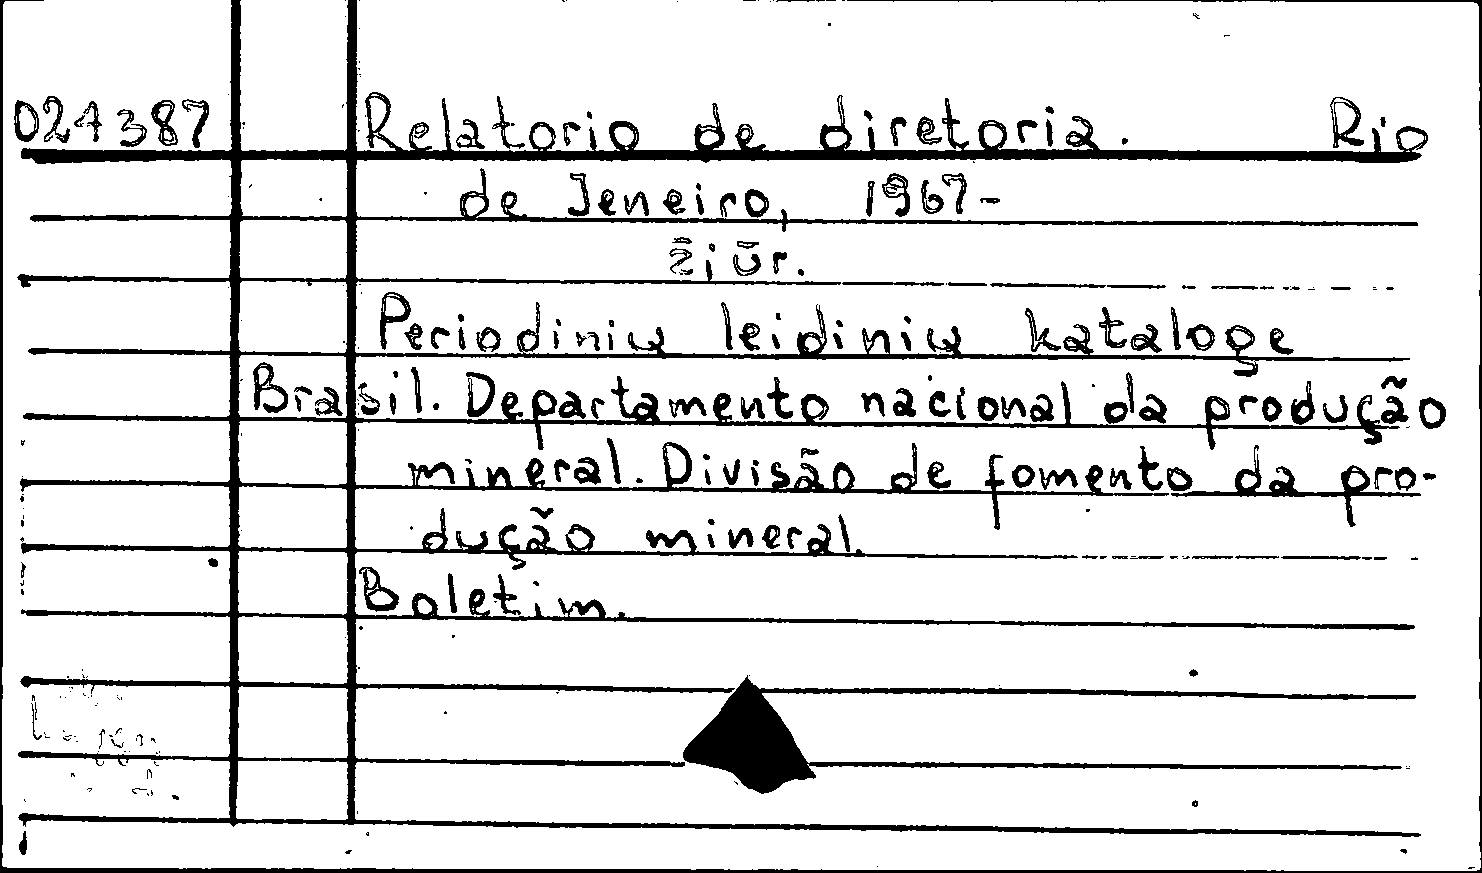 024387 Relatorio de diretoria. Rio
de Jeneiro, 1967-
žiūr.
Periodinių leidinių kataloge
Brasil. Departamento nacional da produção
mineral. Divisão de fomento da pro-
dução mineral.
Boletim.